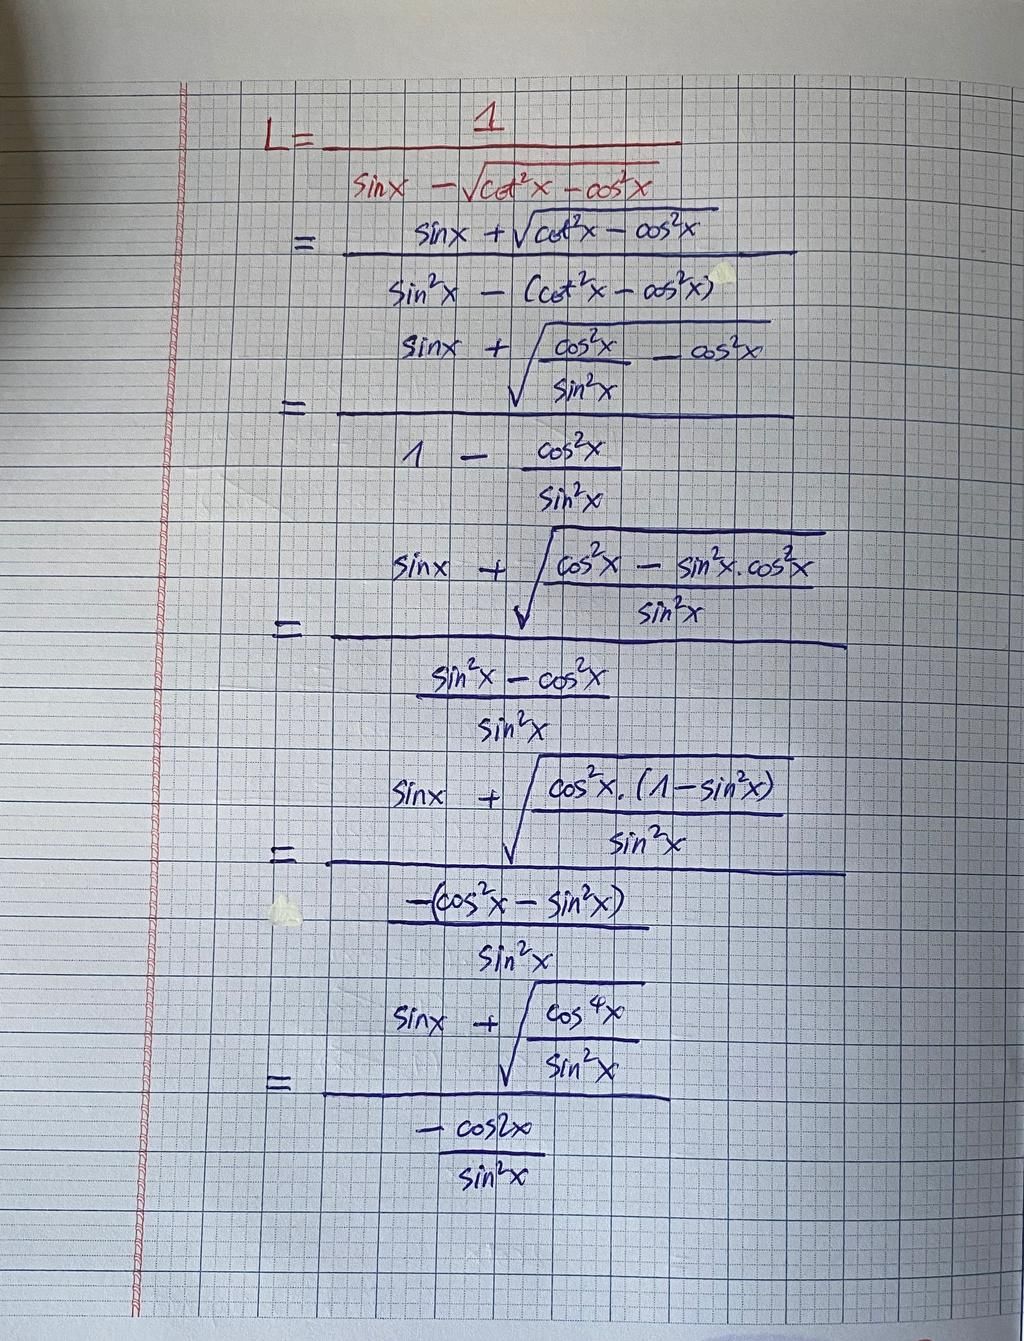 L = 1 / (sinx - √(cot²x - cos²x))
= (sinx + √(cot²x - cos²x)) / (sin²x - (cot²x - cos²x))
= (sinx + √(cos²x / sin²x - cos²x)) / (1 - cos²x / sin²x)
= (sinx + √((cos²x - sin²x.cos²x) / sin²x)) / ((sin²x - cos²x) / sin²x)
= (sinx + √((cos²x.(1-sin²x)) / sin²x)) / (-(cos²x - sin²x) / sin²x)
= (sinx + √(cos⁴x / sin²x)) / (- cos2x / sin²x)